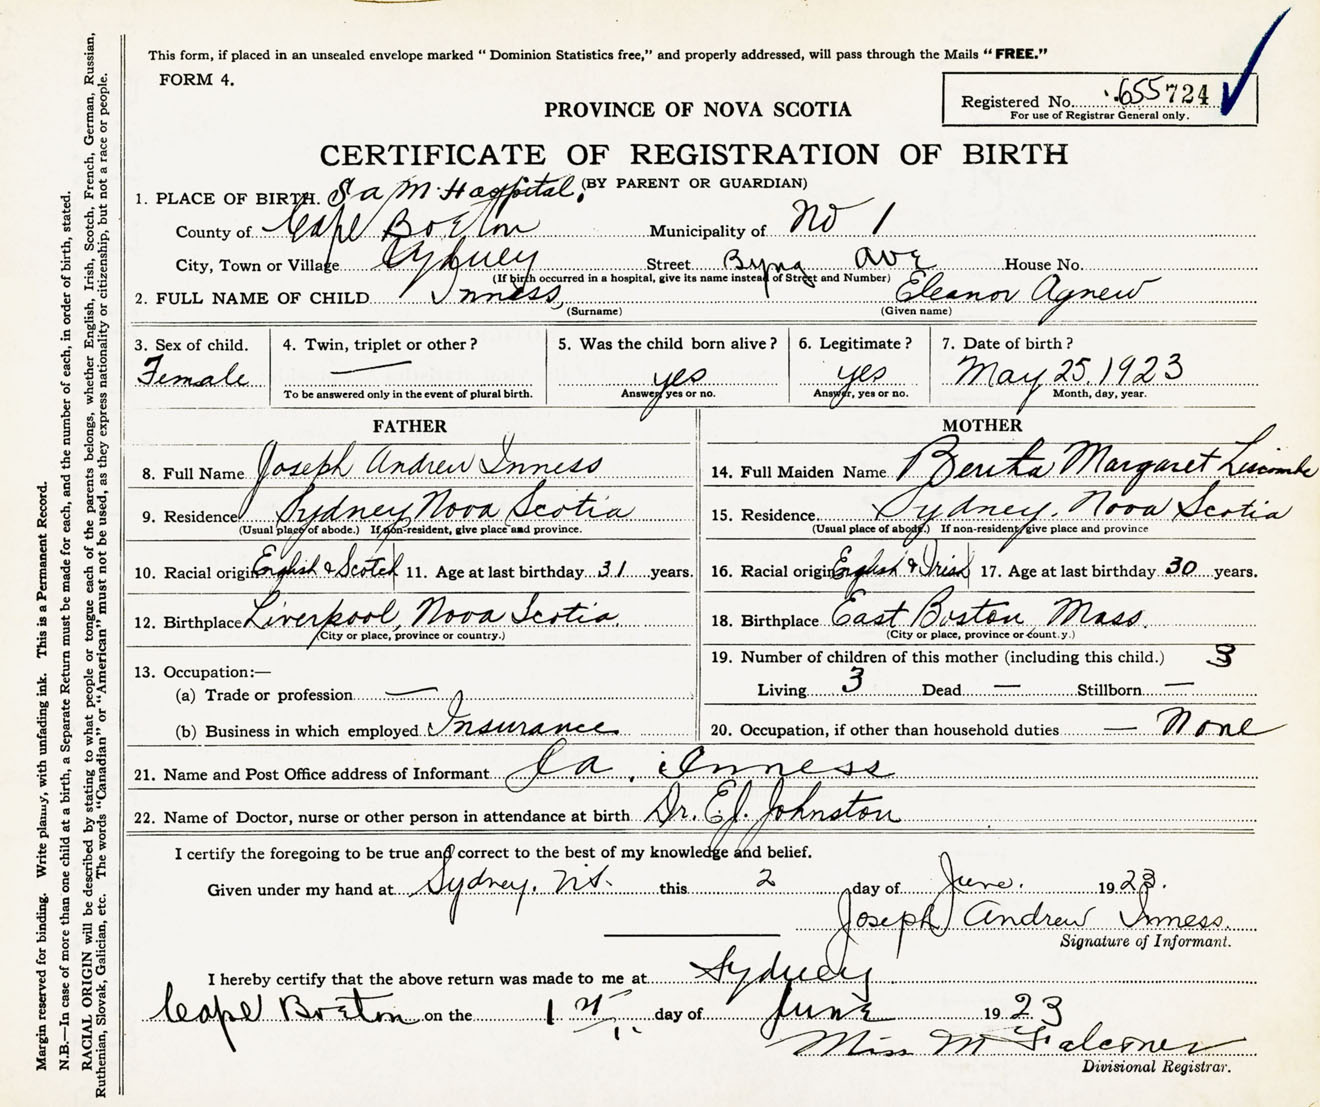 This form, if placed in an unsealed envelope marked "Dominion Statistics free," and properly addressed, will pass through the Mails "FREE."
FORM 4.
Registered No. 655724
For use of Registrar General only.
PROVINCE OF NOVA SCOTIA
CERTIFICATE OF REGISTRATION OF BIRTH
(BY PARENT OR GUARDIAN)
1. PLACE OF BIRTH. S a M Hospital.
County of Cape Breton Municipality of No 1
City, Town or Village Sydney Street Byng Ave House No.
(If birth occurred in a hospital, give its name instead of Street and Number)
2. FULL NAME OF CHILD Inness, Eleanor Agnew
(Surname) (Given name)
3. Sex of child. 4. Twin, triplet or other? 5. Was the child born alive? 6. Legitimate? 7. Date of birth?
Female — yes yes May 25, 1923
To be answered only in the event of plural birth. Answer, yes or no. Answer, yes or no. Month, day, year.
FATHER
8. Full Name Joseph Andrew Inness
9. Residence Sydney Nova Scotia
(Usual place of abode.) If non-resident, give place and province.
10. Racial origin English & Scotch 11. Age at last birthday 31 years.
12. Birthplace Liverpool, Nova Scotia.
(City or place, province or country.)
13. Occupation:—
(a) Trade or profession —
(b) Business in which employed Insurance
MOTHER
14. Full Maiden Name Bertha Margaret Liscombe
15. Residence Sydney. Nova Scotia
(Usual place of abode.) If non-resident give place and province
16. Racial origin English & Irish 17. Age at last birthday 30 years.
18. Birthplace East Boston Mass.
(City or place, province or count.y.)
19. Number of children of this mother (including this child.) 3
Living 3 Dead — Stillborn —
20. Occupation, if other than household duties — None
21. Name and Post Office address of Informant J a. Inness
22. Name of Doctor, nurse or other person in attendance at birth Dr. E.J. Johnston
I certify the foregoing to be true and correct to the best of my knowledge and belief.
Given under my hand at Sydney. N.S. this 2 day of June. 1923.
Joseph Andrew Inness.
Signature of Informant.
I hereby certify that the above return was made to me at Sydney
Cape Breton on the 1 day of June 1923
Miss M Falconer
Divisional Registrar.
Margin reserved for binding. Write plainly, with unfading ink. This is a Permanent Record.
N.B.—In case of more than one child at a birth, a Separate Return must be made for each, and the number of each, in order of birth, stated.
RACIAL ORIGIN will be described by stating to what people or tongue each of the parents belongs, whether English, Irish, Scotch, French, German, Russian,
Ruthenian, Slovak, Galician, etc. The words "Canadian" or "American" must not be used, as they express nationality or citizenship, but not a race or people.